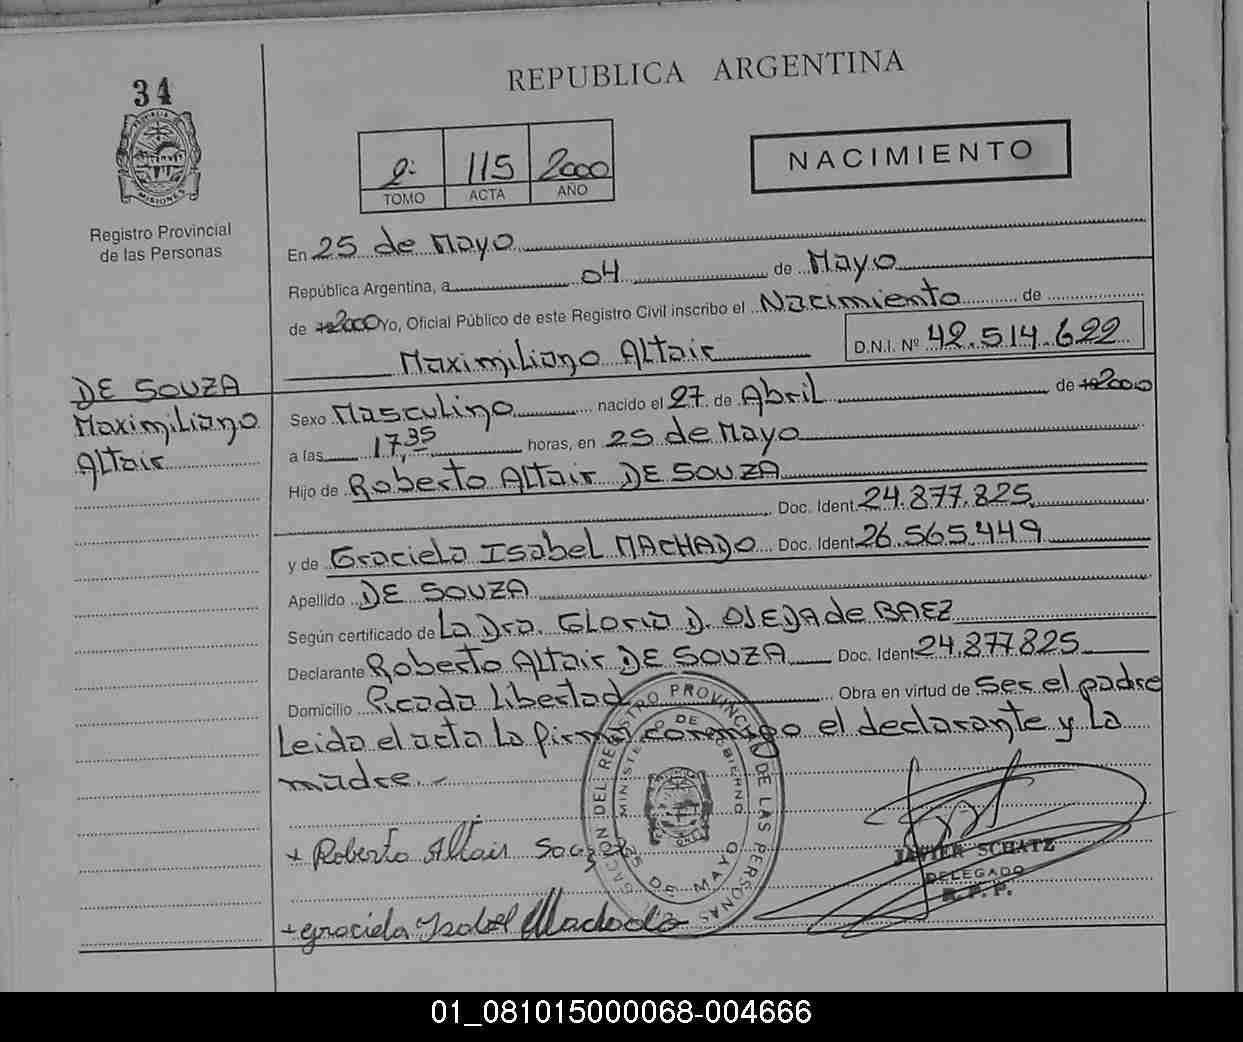 34
PROVINCIA DE
MISIONES
Registro Provincial
de las Personas
DE SOUZA
Maximiliano
Altair
REPUBLICA ARGENTINA
2º 115 2000
TOMO ACTA AÑO
NACIMIENTO
En 25 de Mayo
República Argentina, a 04 de Mayo
de 2000 Yo, Oficial Público de este Registro Civil inscribo el Nacimiento de
Maximiliano Altair D.N.I. Nº 42.514.622
Sexo Masculino nacido el 27 de Abril de 2000
a las 17,35 horas, en 25 de Mayo
Hijo de Roberto Altair DE SOUZA
Doc. Ident. 24.877.825
y de Graciela Isabel MACHADO Doc. Ident 26.565.449
Apellido DE SOUZA
Según certificado de La Dra. Gloria D. OJEDA de BAEZ
Declarante Roberto Altair DE SOUZA Doc. Ident 24.877825
Domicilio Picada Libertad Obra en virtud de Ser el padre
Leida el acta la firma conmigo el declarante y la
madre.-
+ Roberto Altair Souza
+ Graciela Isabel Machado
REGISTRO PROVINCIAL DE LAS PERSONAS
MINISTERIO DE GOBIERNO
25 DE MAYO
JAVIER SCHATZ
DELEGADO
R.P.P.
01_081015000068-004666